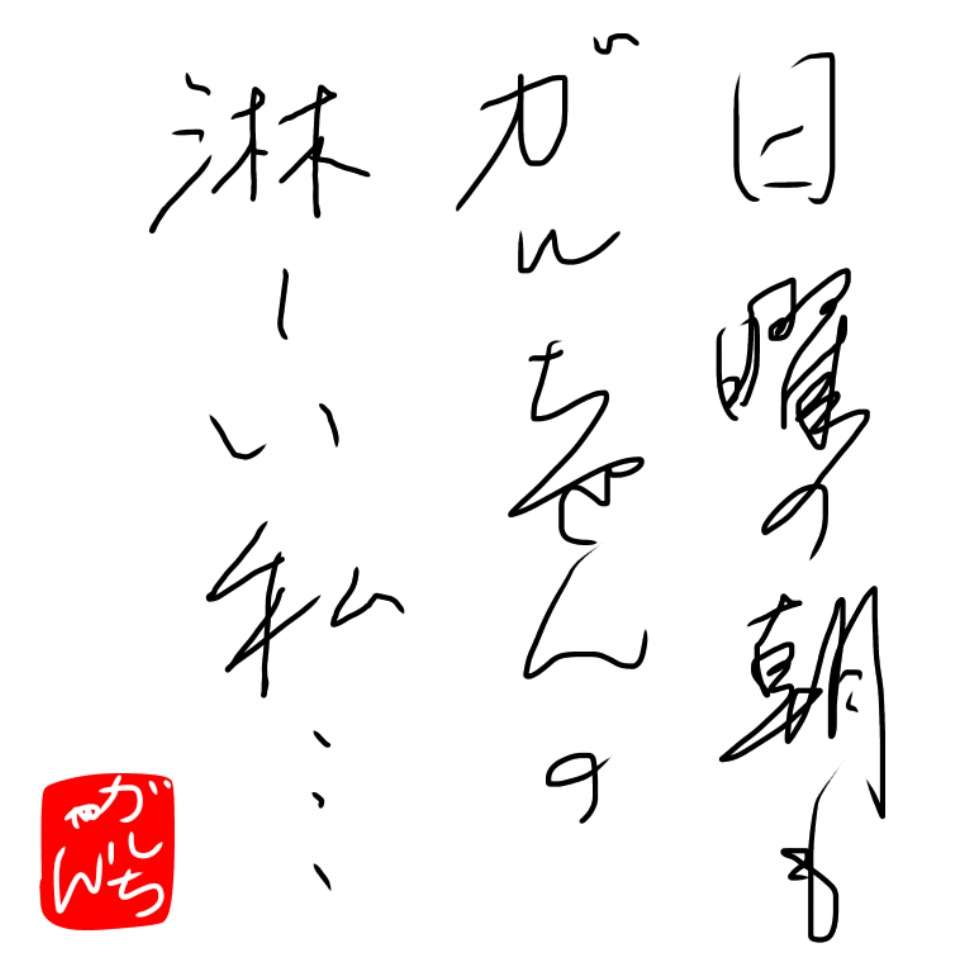 日曜の朝も
ガルちゃんの
淋しい私…
がしち
ゃん